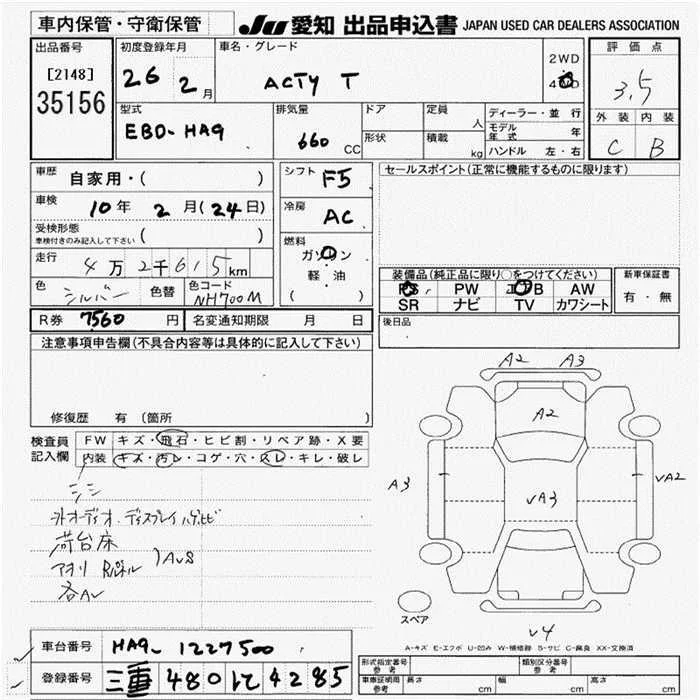 車内保管・守衛保管 JU 愛知 出品申込書 JAPAN USED CAR DEALERS ASSOCIATION
出品番号 初度登録年月 車名・グレード 評価点
[2148] 26 2月 ACTY T 2WD 3.5
35156 4WD
型式 排気量 ドア 定員 人 ディーラー・並行 外装 内装
EBD-HA9 660 CC 形状 積載 kg モデル年式 年 C B
ハンドル 左・右
車歴 自家用・( ) シフト F5 セールスポイント(正常に機能するものに限ります)
車検 10年 2月(24日) 冷房 AC
受検形態 ( )
車検付きのみ記入して下さい
燃料 ガソリン
走行 4万2千615km 軽・油
( )
装備品(純正品に限り○をつけてください) 新車保証書
色 シルバー 色替 色コード NH700M
PS PW AW 有・無
SR ナビ TV カワシート
R券 7560円 名変通知期限 月 日 後日品
注意事項申告欄(不具合内容等は具体的に記入して下さい)
修復歴 有 (箇所 )
検査員 FW キズ・飛石・ヒビ割・リペア跡・X要
記入欄 内装 キズ・汚レ・コゲ・穴・スレ・キレ・破レ
外オーディオ.ディスプレイ
荷台床
アオリ )AUS
A2 A3
A2
A3 vA3 vA2
v4
スペア
A-キズ E-エクボ U-凹み W-補修跡 S-サビ C-腐食 XX-交換済
車台番号 HA9-1227500
登録番号 三重 480 い 4285
形式指定番号 参考 類別区分番号 参考
車庫証明用 参考 長さ cm 幅 cm 高さ cm